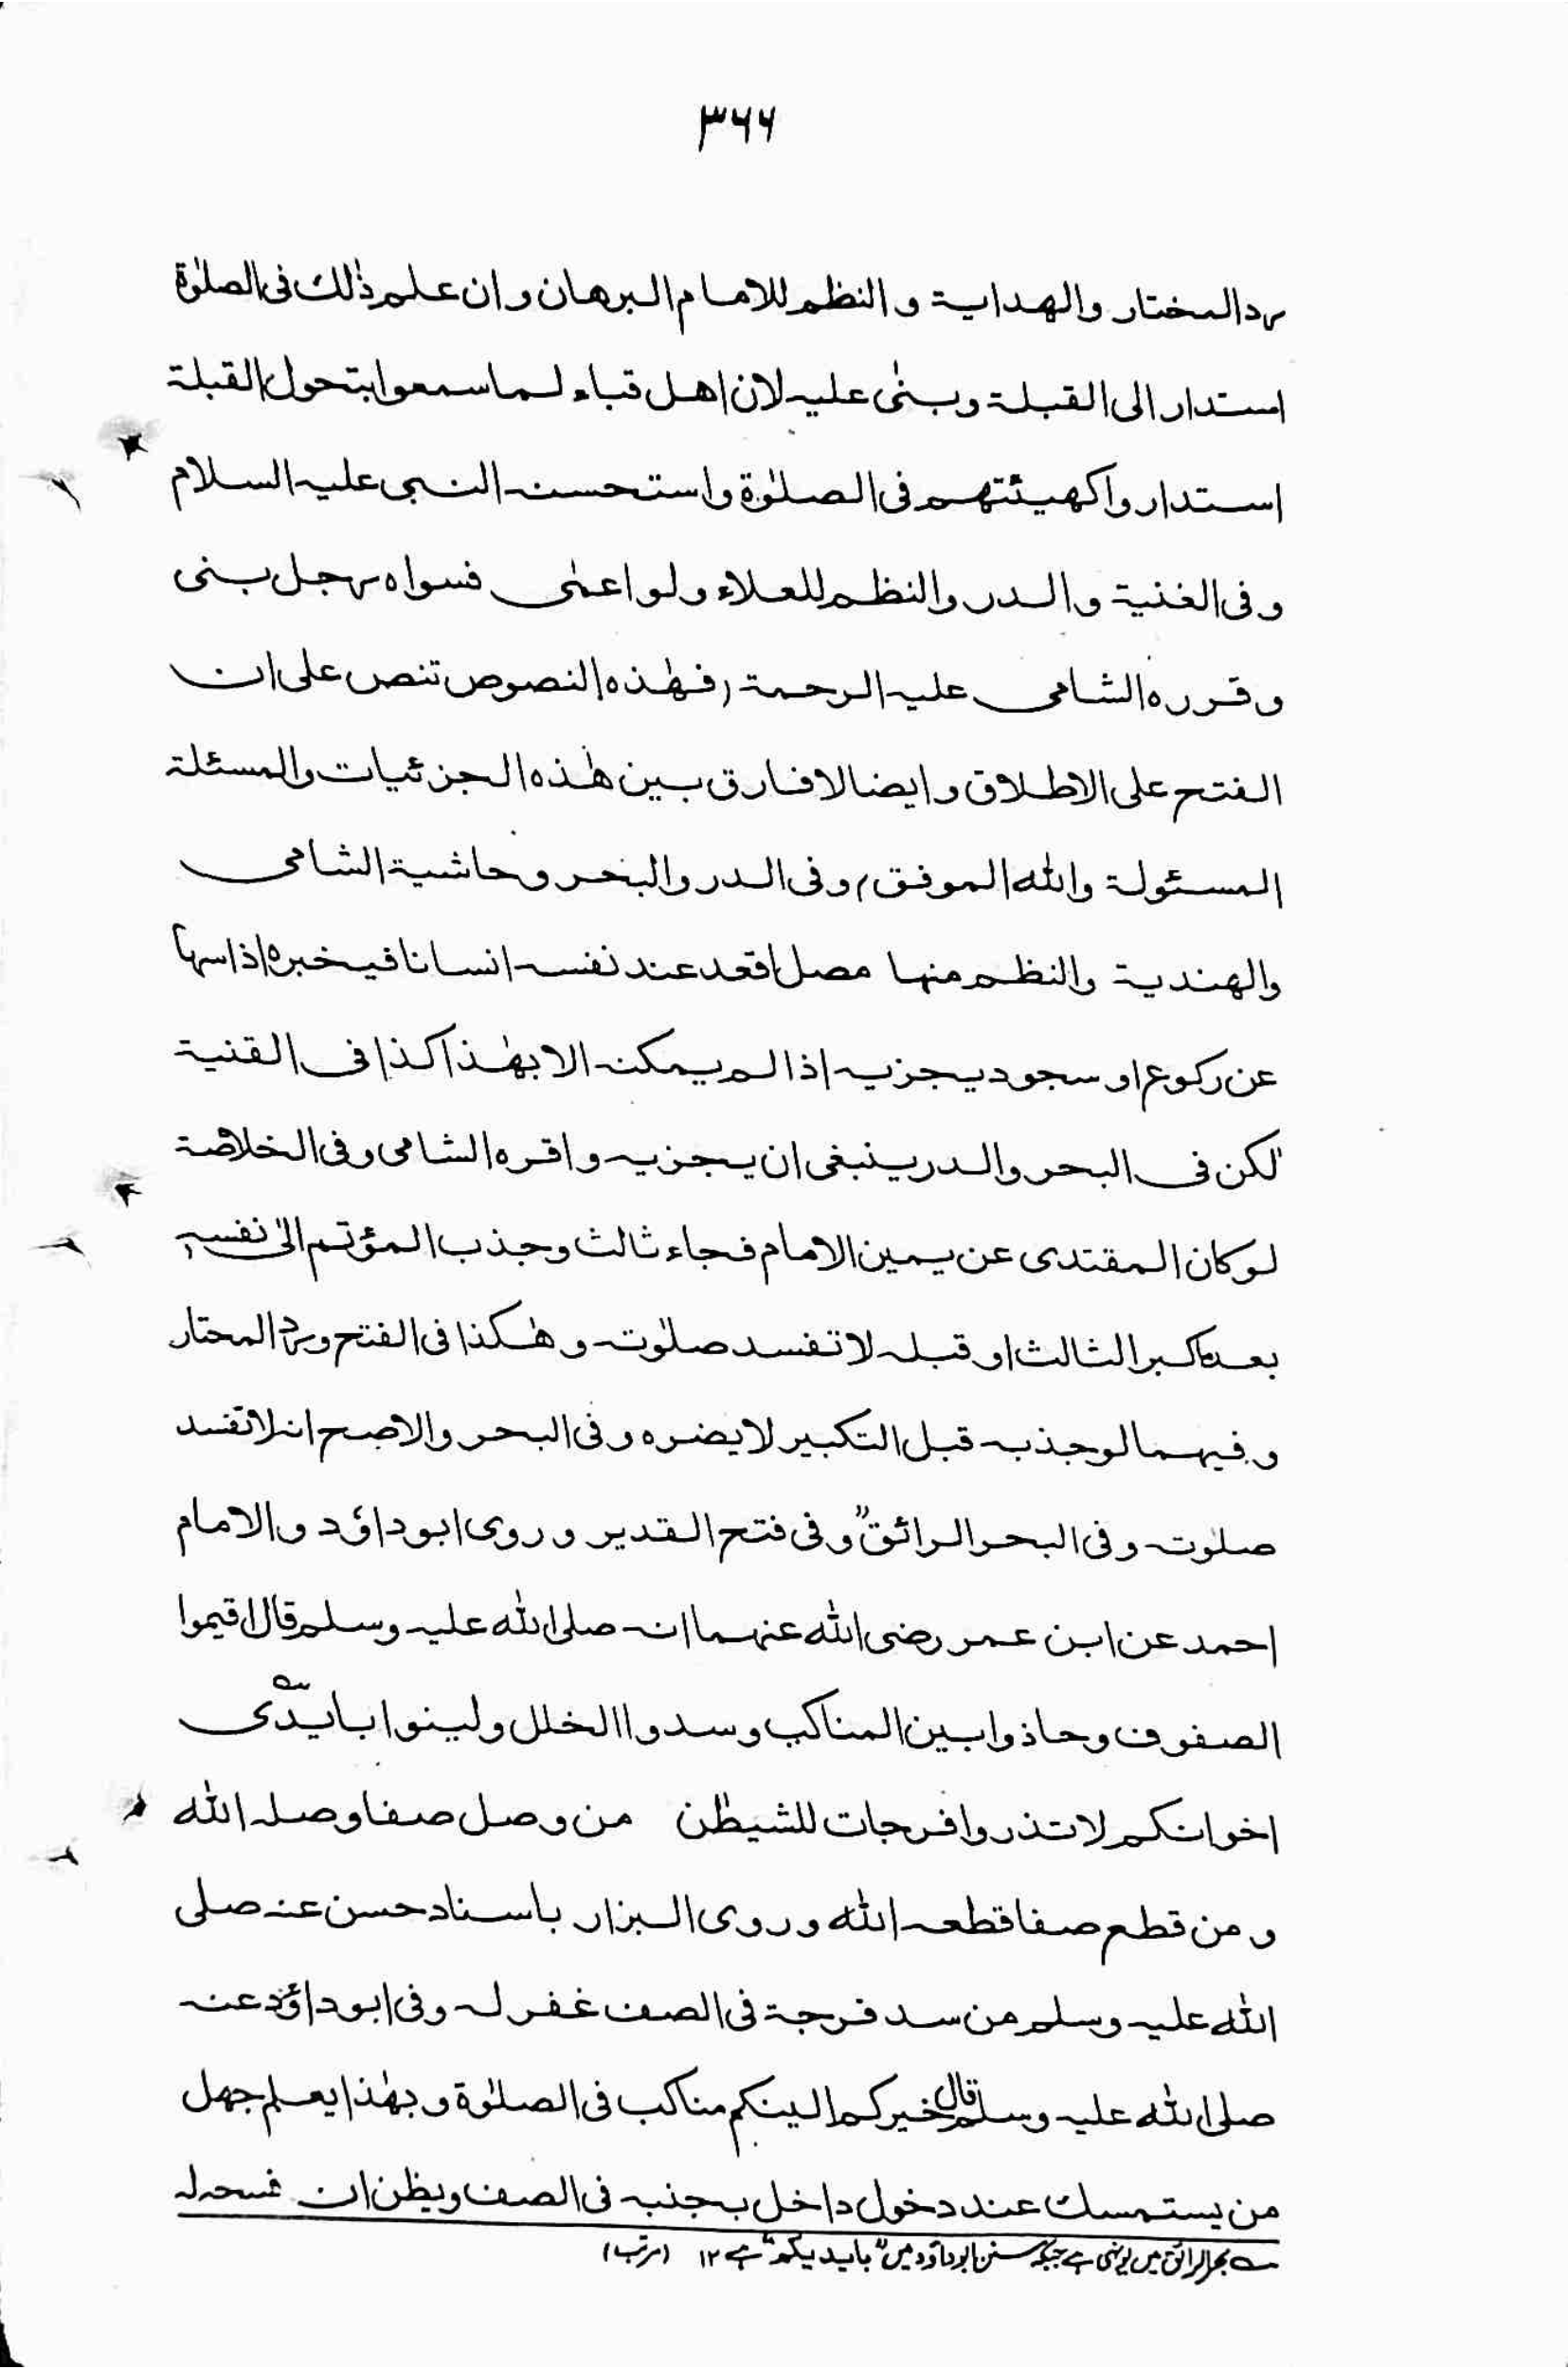 ۳۶۶
رد المختار والهداية والنظم للامام البرهان وان علم ذٰلك فی الصلٰوة
استدار الی القبلة وبنٰی علیه لان اهل قباء لما سمعوا بتحول القبلة
استداروا کهیئتهم فی الصلٰوة واستحسنه النبی علیه السلام
وفی الغنیة والدر والنظم للعلاء ولو اعمٰی فسواه رجل بنی
وقرره الشامی علیه الرحمة (فهٰذه النصوص تنص علی ان
الفتح علی الاطلاق وایضا لا فارق بین هٰذه الجزئیات والمسئلة
المسئولة والله الموفق) وفی الدر والبحر وحاشیة الشامی
والهندیة والنظم منها مصل اقعد عند نفسه انسانا فیخبره اذا سها
عن رکوع او سجود یجزیه اذا لم یمکنه الا بهٰذا کذا فی القنیة
لٰکن فی البحر والدر ینبغی ان یجزیه واقره الشامی وفی الخلاصة
لو کان المقتدی عن یمین الامام فجاء ثالث وجذب المؤتم الیٰ نفسه
بعد ما کبر الثالث او قبله لا تفسد صلٰوته وهٰکذا فی الفتح ورد المحتار
وفیهما لو جذبه قبل التکبیر لا یضره وفی البحر والاصح انه لا تفسد
صلٰوته وفی البحر الرائق" وفی فتح القدیر وروی ابو داؤد والامام
احمد عن ابن عمر رضی الله عنهما انه صلی الله علیه وسلم قال اقیموا
الصفوف وحاذوا بین المناکب وسدوا الخلل ولینوا بایدی؂
اخوانکم لا تذروا فرجات للشیطٰن من وصل صفا وصله الله
ومن قطع صفا قطعه الله وروی البزار باسناد حسن عنه صلی
الله علیه وسلم من سد فرجة فی الصف غفر له وفی ابو داؤد عنه
صلی الله علیه وسلم قال خیرکم الینکم مناکب فی الصلٰوة وبهٰذا یعلم جهل
من یستمسك عند دخول داخل بجنبه فی الصف ویظن ان فسحه له
؂ بحر الرائق میں یونہی ہے جبکہ سنن ابو داؤد میں "بایدیکم" ہے ۱۲ (مرتب)